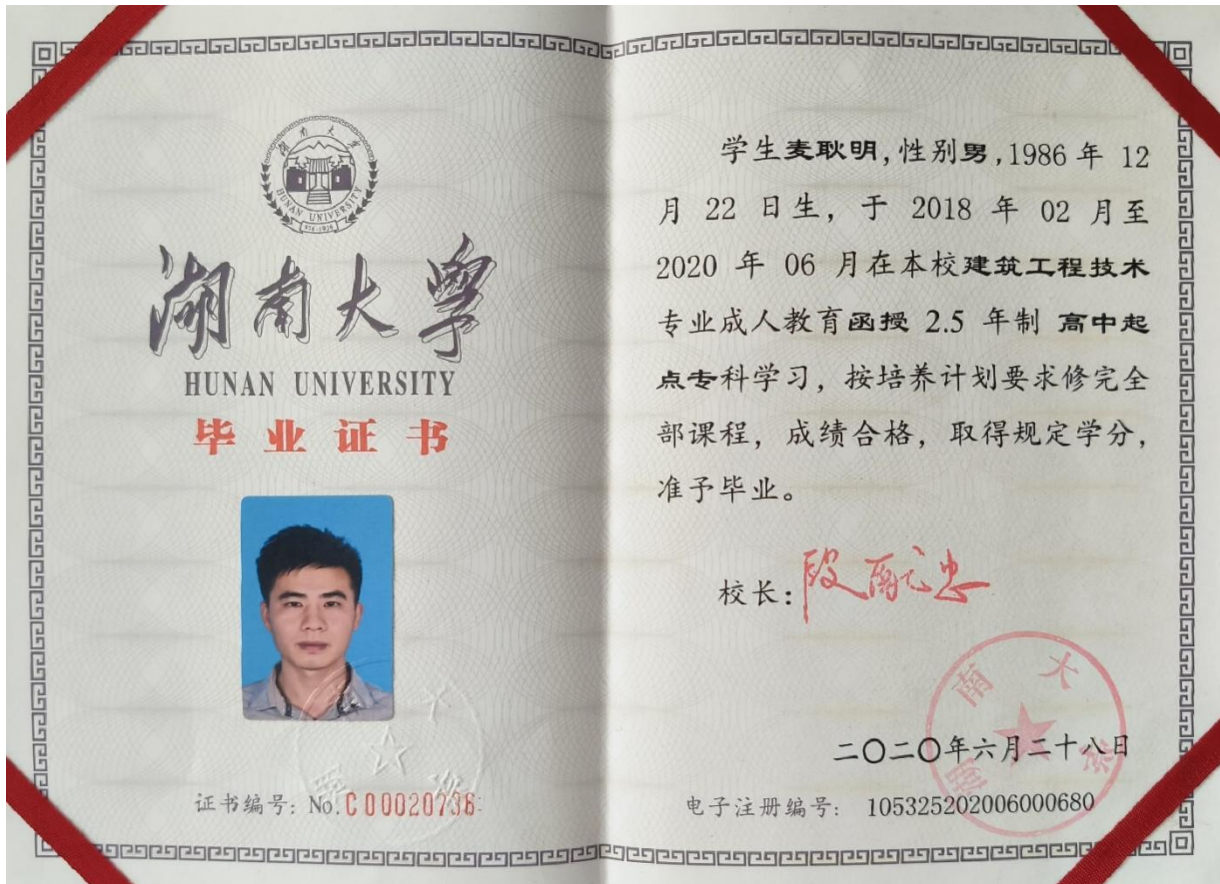 湖南大学
HUNAN UNIVERSITY
湖南大学
HUNAN UNIVERSITY
毕业证书
证书编号: No. C00020738
学生麦耿明,性别男,1986 年 12
月 22 日生，于 2018 年 02 月至
2020 年 06 月在本校建筑工程技术
专业成人教育函授 2.5 年制 高中起
点专科学习，按培养计划要求修完全
部课程，成绩合格，取得规定学分，
准予毕业。
校长:
湖南大学
二〇二〇年六月二十八日
电子注册编号: 105325202006000680